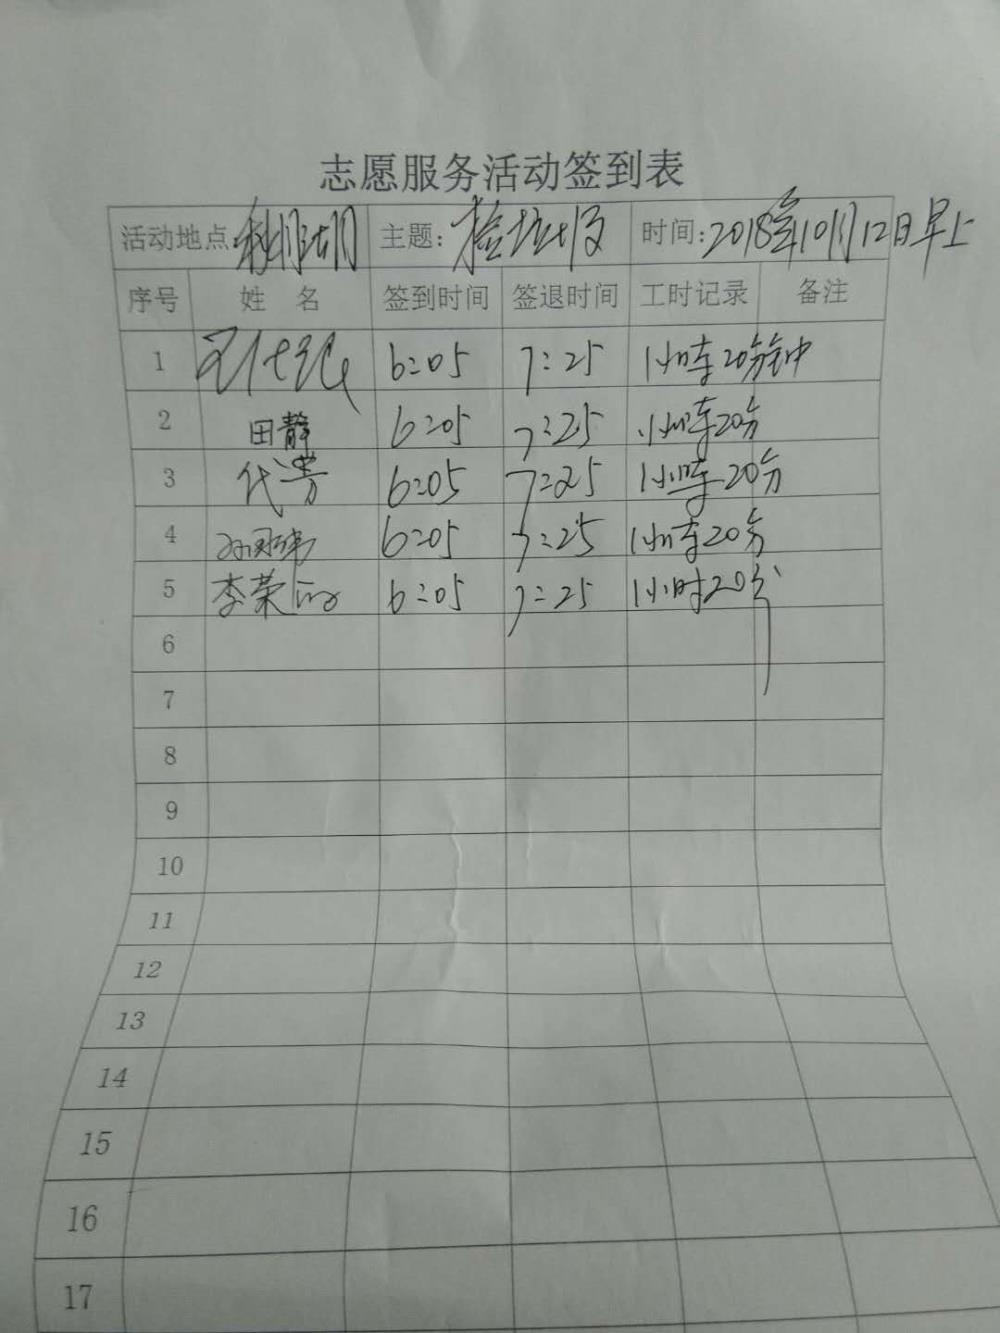 志愿服务活动签到表
活动地点: 秋月湖 主题: 捡垃圾 时间: 2018年10月12日早上
序号 姓名 签到时间 签退时间 工时记录 备注
1 6:05 7:25 1小时20分钟
2 田静 6:05 7:25 1小时20分
3 代芳 6:05 7:25 1小时20分
4 6:05 7:25 1小时20分
5 李荣 6:05 7:25 1小时20分
6
7
8
9
10
11
12
13
14
15
16
17